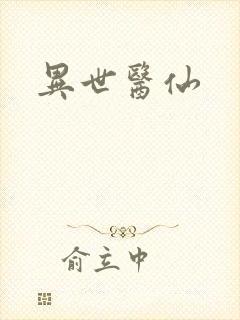 異世醫仙
俞立中